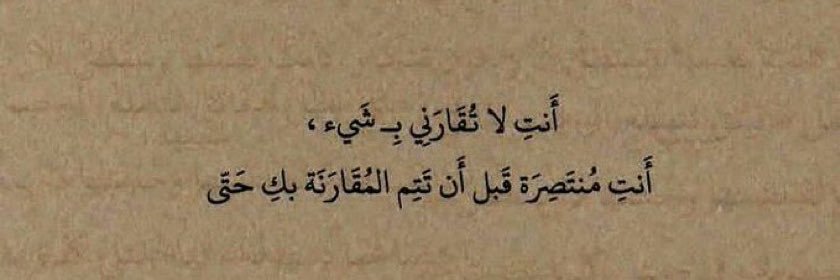 أَنتِ لا تُقَارَنِي بِـ شَيء ،
أَنتِ مُنتَصِرَة قَبل أَن تَتِم المُقَارَنَة بكِ حَتّى